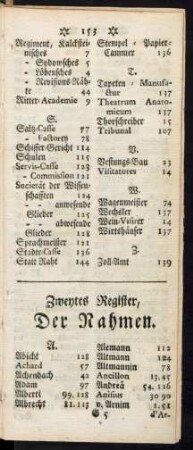 ❉ 153 ❉
Regiment, Kalckstei-
nisches 7
- Sydowsches 5
- Löbensches 4
- Revisions-Räh-
te 44
Ritter-Academie 9
S.
Saltz-Casse 77
- Factorey 78
Schiffer-Gericht 114
Schulen 115
Servis-Casse 123
- Commission 121
Societät der Wissen-
schafften 114
- - anwesende
Glieder 125
- - abwesende
Glieder 128
Sprachmeister 121
Stadts-Casse 136
Statt Raht 144
Stempel-Papier-
Cammer 136
T.
Tapeten-Manufa-
ctur 137
Theatrum Anato-
micum 137
Thorschreiber 15
Tribunal 107
V.
Vestungs-Bau 23
Visitatores 14
W.
Wagenmeister 74
Wechsler 137
Wein-Visirer 14
Wirthshäuser 137
Z.
Zoll-Amt 139
Zweytes Register,
Der Nahmen.
A.
Abicht 128
Achard 57
Achenbach 42
Adam 97
Alberti 99. 128
Albrecht 21. 113
Alemann 112
Altmann 124
Allemannin 78
Ancillon 13. 45
Andreä 54. 126
Anisius 30. 90
v. Arnim 51
d'Ar-